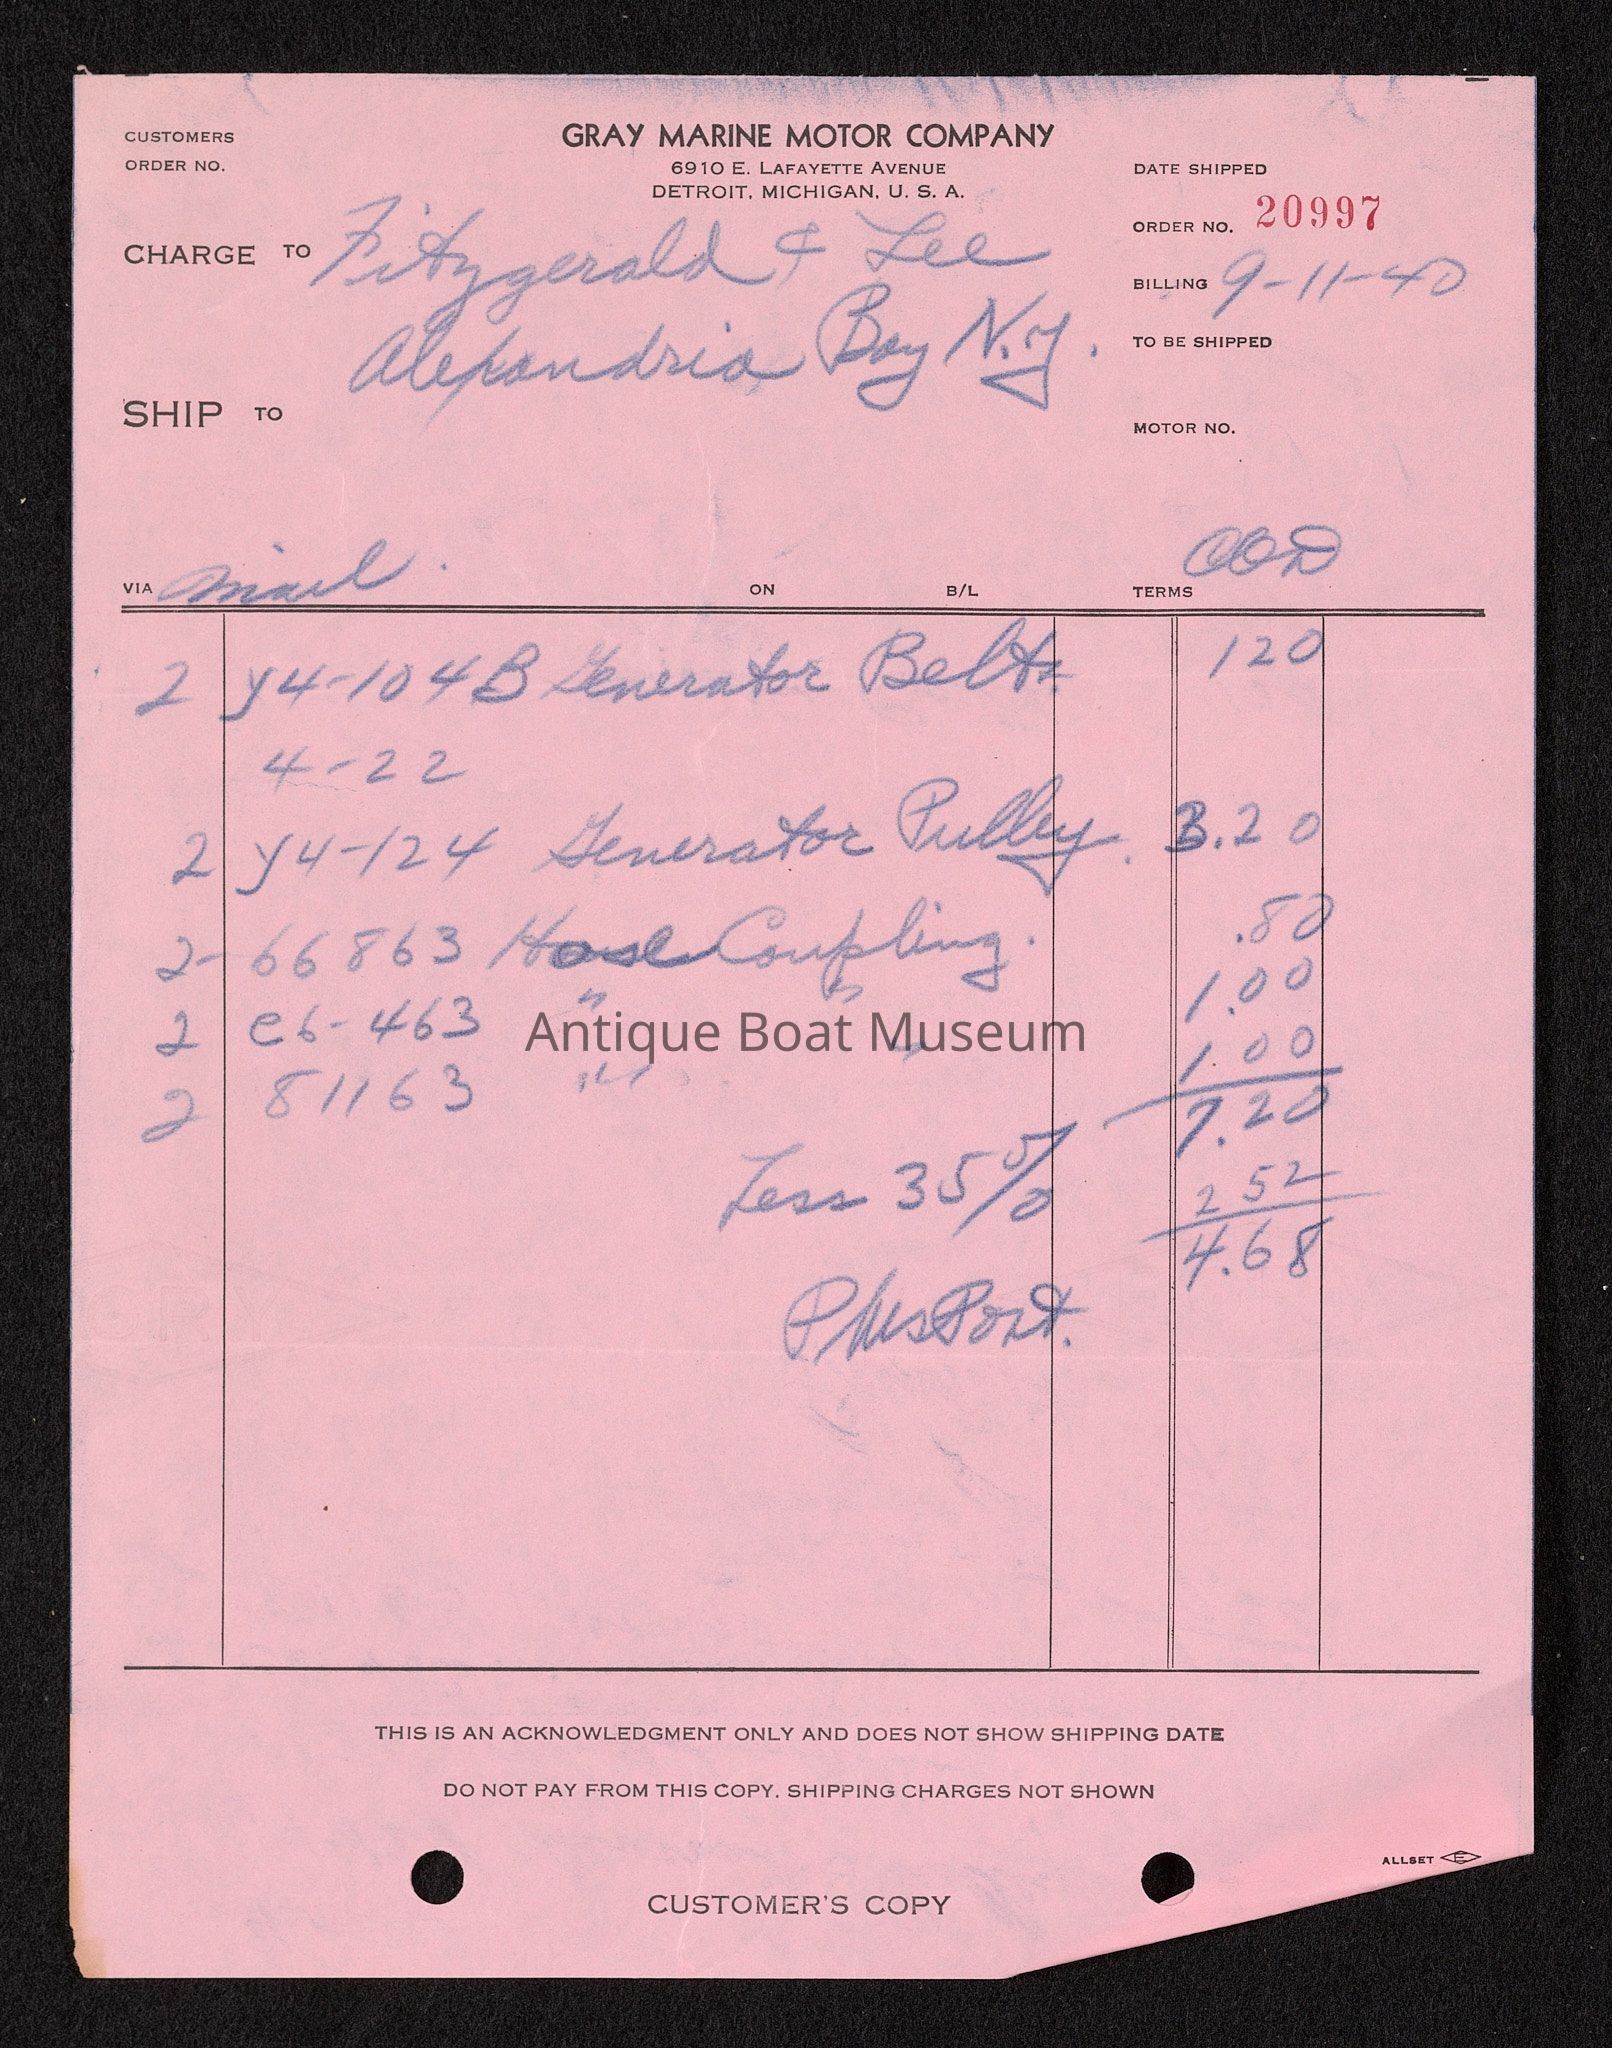 CUSTOMERS
ORDER NO.
GRAY MARINE MOTOR COMPANY
6910 E. LAFAYETTE AVENUE
DETROIT, MICHIGAN, U. S. A.
DATE SHIPPED
ORDER NO. 20997
CHARGE TO Fitzgerald & Lee
BILLING 9-11-40
Alexandria Bay N.Y.
TO BE SHIPPED
SHIP TO
MOTOR NO.
VIA Mail. ON B/L TERMS COD
2 Y4-104B Generator Belts 120
4-22
2 Y4-124 Generator Pulley. 3.20
2- 66863 Hose Coupling. .80
2 e6-463 " " 1.00
2 81163 " " 1.00
7.20
Less 35% 2 52
4.68
Plus Post.
Antique Boat Museum
THIS IS AN ACKNOWLEDGMENT ONLY AND DOES NOT SHOW SHIPPING DATE
DO NOT PAY FROM THIS COPY. SHIPPING CHARGES NOT SHOWN
ALLSET E
CUSTOMER'S COPY